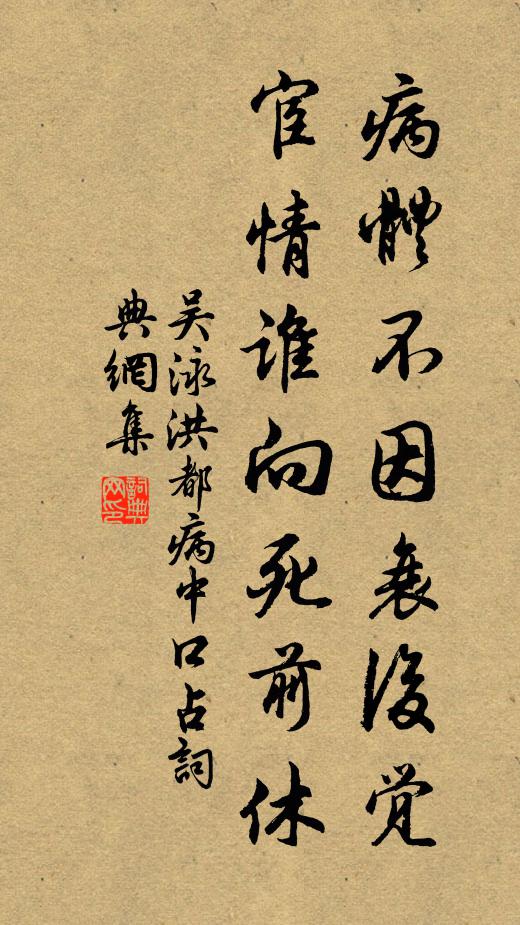 病體不因衰後覺
宦情誰向死前休
吴泳洪都病中口占詞
典網集
詞典網印